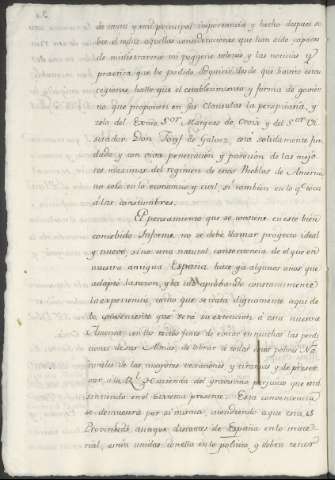 de tanta y mui principal importancia y hecho despues so-
bre el mismo aquellas consideraciones que han sido capaces
de ministrarme mi pequeño talento, y las noticias y
practica que he podido adquirir desde que havito estas
regiones, hallo que el establecimiento y forma de govier-
no que proponen en sus Consultas la perspicacia, y
zelo del Exmo. Sor. Marques de Croix y del Sor. Vi-
sitador Don Josef de Galvez, está solidamente fun-
dado y con entera penetracion y posesion de las mejo-
res maximas del regimen de estos Pueblos de America
no solo en lo economico y civil si tambien en lo que toca
á las costumbres.
El pensamiento que se contiene en este bien
concebido Informe no se debe llamar proyecto ideal
y nuevo, sino una natural consecuencia de el que en
nuestra antigua España hace ya algunos años que
adoptó la razon, y ha aprobado constantemente
la experiencia, como que se trata dignamente aqui de
lo conveniente que será su extencion á esta nuestra
America, con los recelos fines de evitar en muchas las perdi-
ciones de sus Almas, de librar á todos estos pobres Na-
turales de las mayores vexaciones y tiranias y de preser-
var á la Rl. Hacienda del gravisimo perjuicio que está
sintiendo en el sistema presente. Esta conveniencia
se demuestra por si misma, atendiendo aque estas
Provincias aunque distantes de España en lo mate-
rial, estan unidas con ella en lo politico, y deben tener